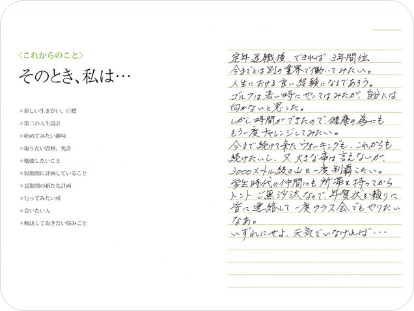 〈これからのこと〉
そのとき、私は…
●新しい生きがい、目標
●第二の人生設計
●始めてみたい趣味
●取りたい資格、免許
●勉強したいこと
●短期間に計画していること
●長期間の新たな計画
●行ってみたい所
●会いたい人
●解決しておきたい悩みごと
定年退職後、できれば3年間位
今までとは別の業界で働いてみたい。
人生における良い経験になるであろう。
ゴルフは若い時にやってはみたが、自分には
向かないと思った。
しかし時間ができたので、健康の為にも
もう一度チャレンジしてみたい。
今まで続けて来たウォーキングも、これからも
続けたいし、又、大きな事は言えないが、
3000メートル級の山を一度制覇したい。
学生時代の仲間にも所帯を持ってから
トントご無沙汰なので、年賀状を頼りに
皆に連絡して一度クラス会でもやりたい
なあ。
いずれにせよ、元気でいなければ・・・